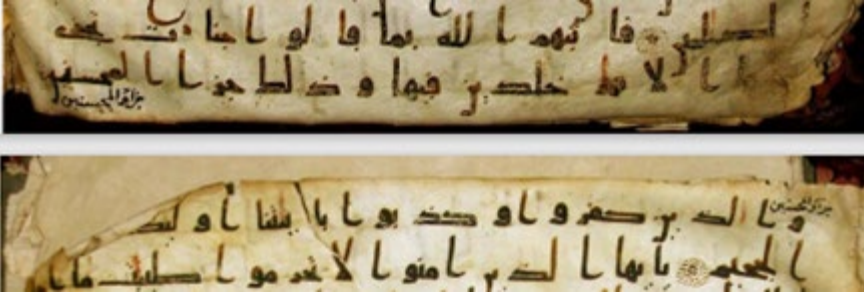 الصلحين فاثبهم الله بما قالوا جنات
الانهر خلدين فيها وذلك جزا المحسنين
جزاؤ المحسنين
جزاؤ المحسنين
والذين كفروا وكذبوا بايتنا اولئك
الجحيم يايها الذين امنوا لا تحرموا طيبت ما